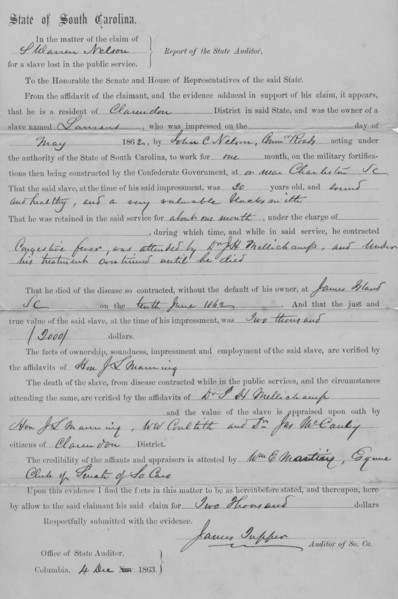 State of South Carolina.
In the matter of the claim of
S Warren Nelson
for a slave lost in the public service.
Report of the State Auditor,
To the Honorable the Senate and House of Representatives of the said State.
From the affidavit of the claimant, and the evidence adduced in support of his claim, it appears,
that he is a resident of Clarendon District in said State, and was the owner of a
slave named , who was impressed on the day of
May 1862, by John C Nelson, Comr Roads acting under
the authority of the State of South Carolina, to work for one month, on the military fortifica-
tions then being constructed by the Confederate Government, at or near Charleston SC
That the said slave, at the time of his said impressment, was 30 years old, and sound
and healthy, and a very valuable blacksmith
That he was retained in the said service for about one month, under the charge of
, during which time, and while in said service, he contracted
Congestive fever, was attended by Dr J.H. Mellichamp, and under
his treatment continued until he died
That he died of the disease so contracted, without the default of his owner, at James Island
SC on the tenth June 1862 And that the just and
true value of the said slave, at the time of his impressment, was Two thousand
(2000) dollars.
The facts of ownership, soundness, impressment and employment of the said slave, are verified by
the affidavits of Hon J L Manning
The death of the slave, from disease contracted while in the public services, and the circumstances
attending the same, are verified by the affidavits of Dr J H Mellichamp
and the value of the slave is appraised upon oath by
Hon J L Manning, W W and Dr Jas McCauley
citizens of Clarendon District.
The credibility of the affiants and appraisers is attested by Wm E Martin, Esquire
Clerk of Senate of So Caro
Upon this evidence I find the facts in this matter to be as hereinbefore stated, and thereupon, here
by allow to the said claimant his said claim for Two Thousand dollars
Respectfully submitted with the evidence.
James Tupper
Auditor of So. Ca.
Office of State Auditor,
Columbia, 4 Dec 1863.